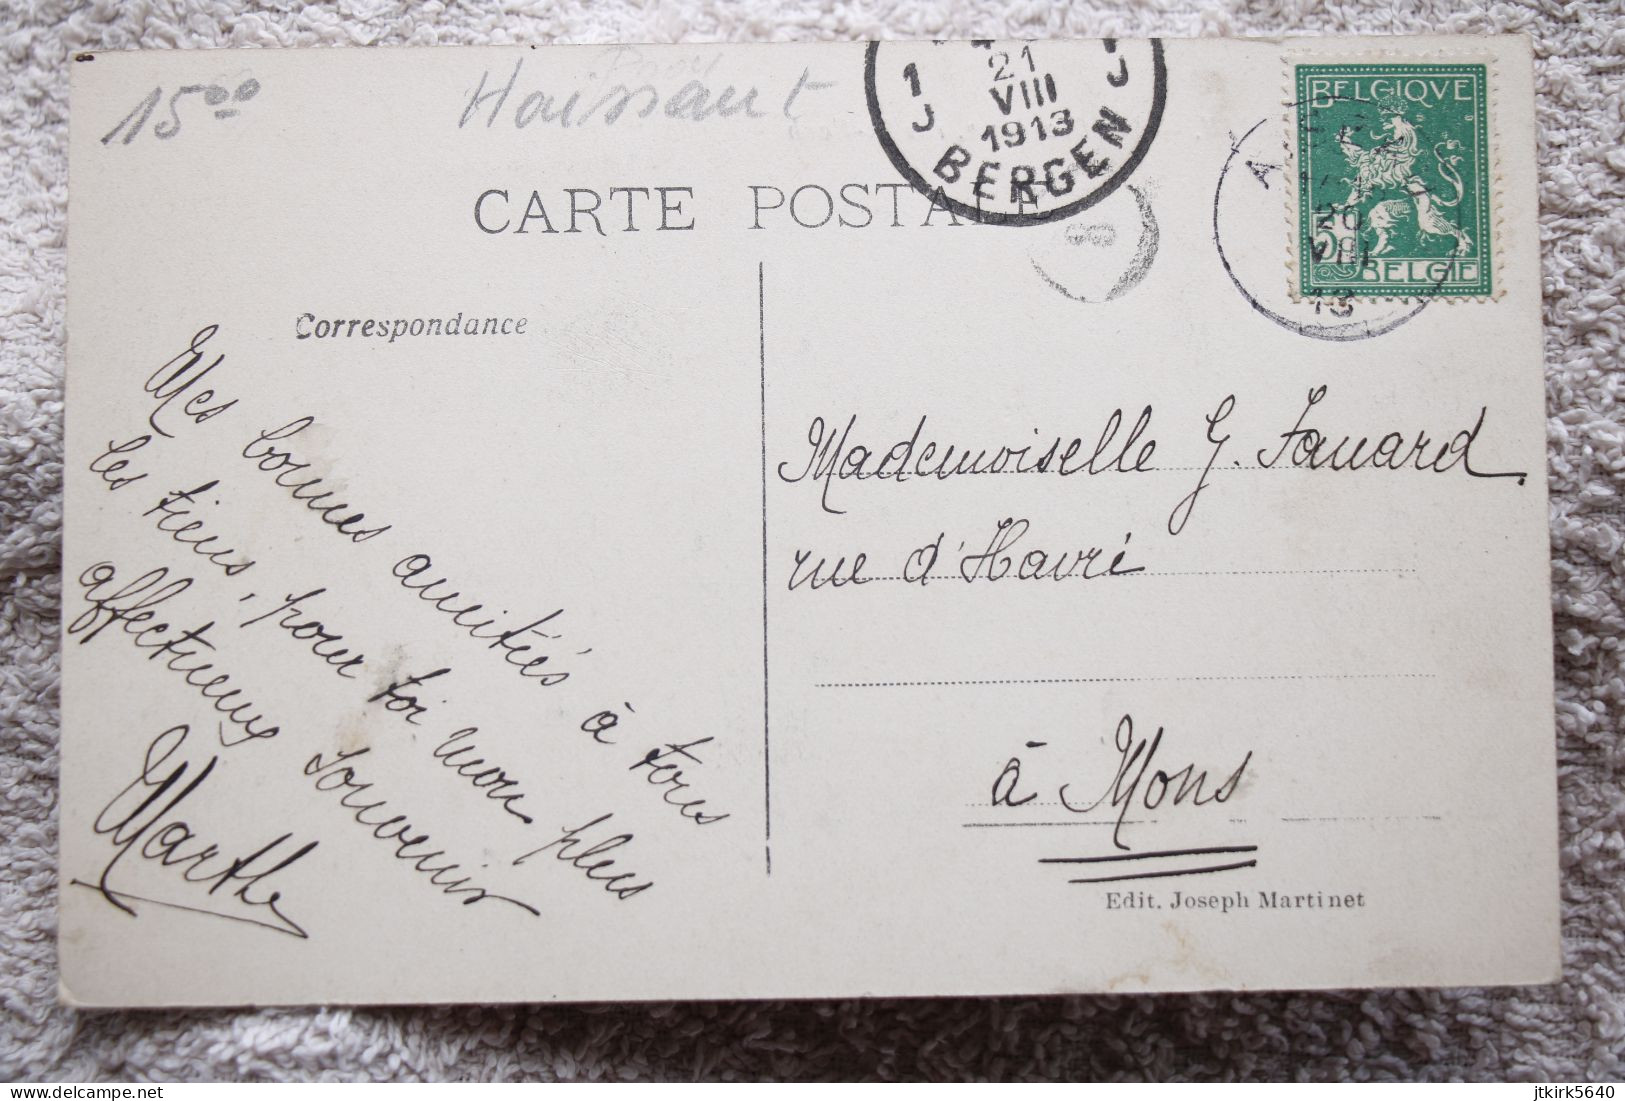 15⁰⁰
Haissaut
1 J
21
VIII
1913
J
BERGEN
BELGIQVE
5
BELGIE
20
VIII
13
8
CARTE POSTALE
Correspondance
Mes bonnes amitiés à tous
les tiens, pour toi mon plus
affectueux souvenir
Marthe
Mademoiselle G. Fauard.
rue d'Havré
à Mons
Edit. Joseph Martinet
jtkirk5640